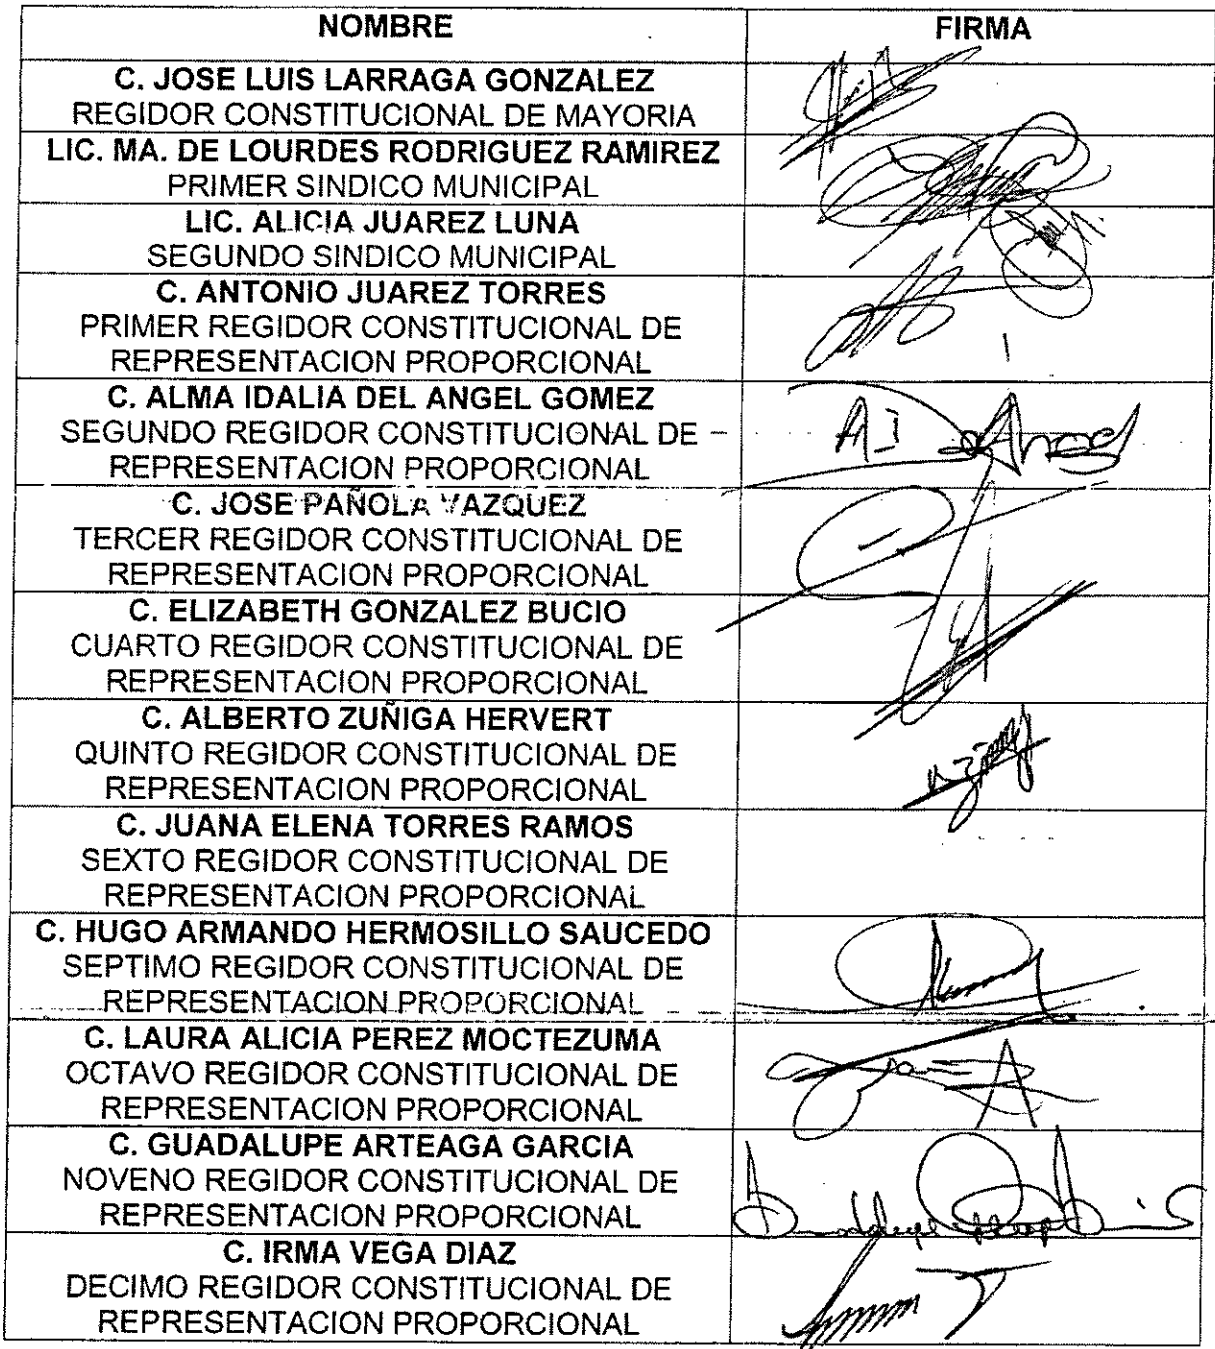 NOMBRE FIRMA
C. JOSE LUIS LARRAGA GONZALEZ
REGIDOR CONSTITUCIONAL DE MAYORIA
LIC. MA. DE LOURDES RODRIGUEZ RAMIREZ
PRIMER SINDICO MUNICIPAL
LIC. ALICIA JUAREZ LUNA
SEGUNDO SINDICO MUNICIPAL
C. ANTONIO JUAREZ TORRES
PRIMER REGIDOR CONSTITUCIONAL DE
REPRESENTACION PROPORCIONAL
C. ALMA IDALIA DEL ANGEL GOMEZ
SEGUNDO REGIDOR CONSTITUCIONAL DE
REPRESENTACION PROPORCIONAL
C. JOSE PAÑOLA VAZQUEZ
TERCER REGIDOR CONSTITUCIONAL DE
REPRESENTACION PROPORCIONAL
C. ELIZABETH GONZALEZ BUCIO
CUARTO REGIDOR CONSTITUCIONAL DE
REPRESENTACION PROPORCIONAL
C. ALBERTO ZUÑIGA HERVERT
QUINTO REGIDOR CONSTITUCIONAL DE
REPRESENTACION PROPORCIONAL
C. JUANA ELENA TORRES RAMOS
SEXTO REGIDOR CONSTITUCIONAL DE
REPRESENTACION PROPORCIONAL
C. HUGO ARMANDO HERMOSILLO SAUCEDO
SEPTIMO REGIDOR CONSTITUCIONAL DE
REPRESENTACION PROPORCIONAL
C. LAURA ALICIA PEREZ MOCTEZUMA
OCTAVO REGIDOR CONSTITUCIONAL DE
REPRESENTACION PROPORCIONAL
C. GUADALUPE ARTEAGA GARCIA
NOVENO REGIDOR CONSTITUCIONAL DE
REPRESENTACION PROPORCIONAL
C. IRMA VEGA DIAZ
DECIMO REGIDOR CONSTITUCIONAL DE
REPRESENTACION PROPORCIONAL